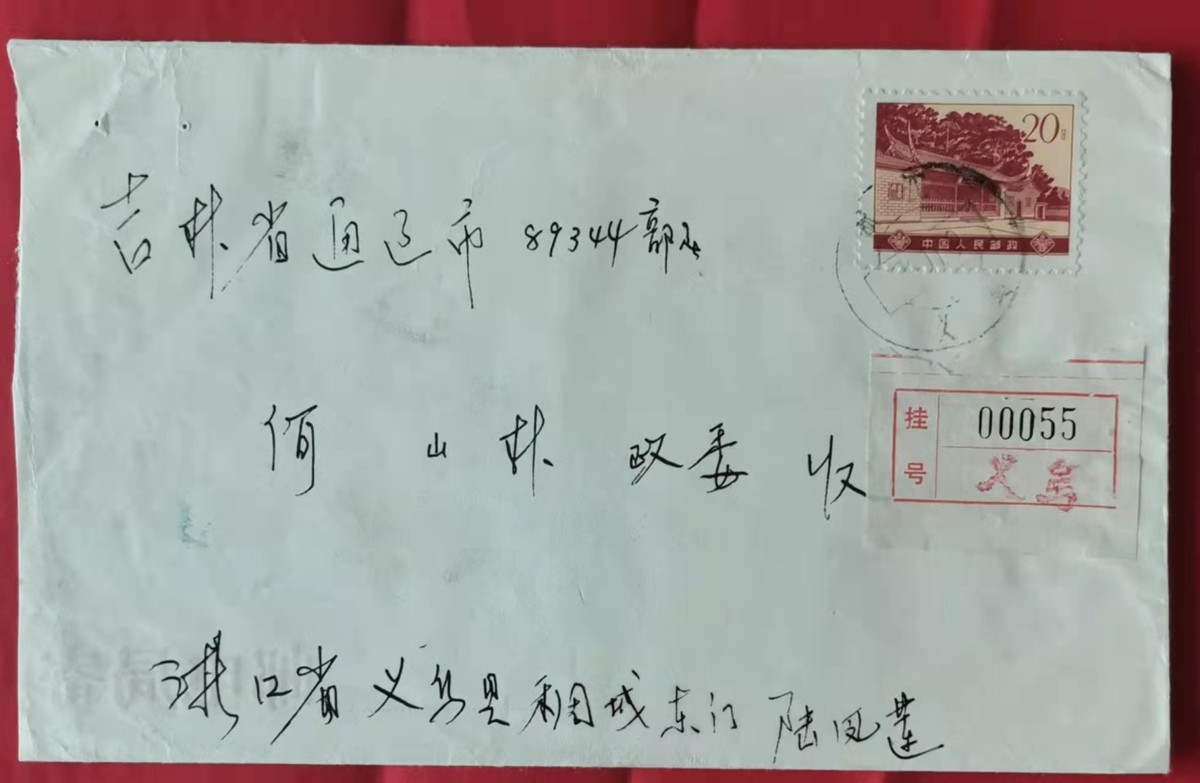 20分
中国人民邮政
吉林省通辽市 89344部队
何山林 政委 收
挂号
00055
义乌
浙江省义乌县稠城东门 陆凤莲